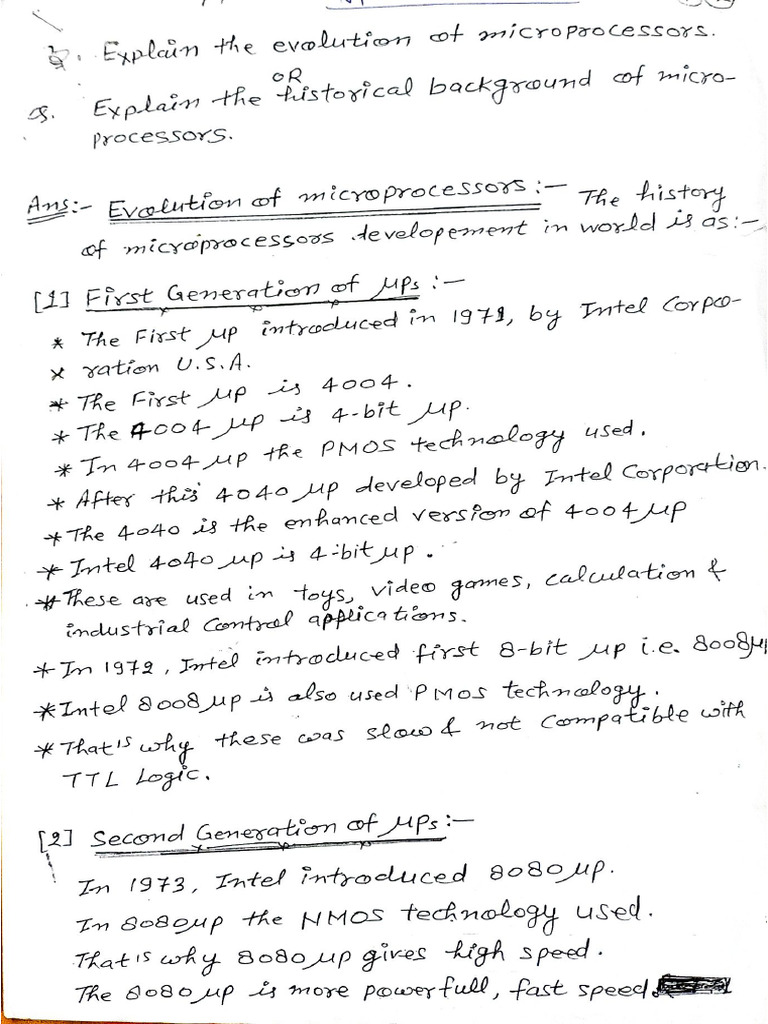 Q. Explain the evolution of microprocessors.
OR
Q. Explain the historical background of micro-
processors.
Ans:- Evolution of microprocessors:- The history
of microprocessors developement in world is as:-
[1] First Generation of μPs:-
* The First μp introduced in 1971, by Intel Corpo-
* ration U.S.A.
* The First μp is 4004.
* The 4004 μp is 4-bit μp.
* In 4004 μp the PMOS technology used.
* After this 4040 μp developed by Intel Corporation.
* The 4040 is the enhanced version of 4004 μp
* Intel 4040 μp is 4-bit μp.
* These are used in toys, video games, calculation &
industrial Control applications.
* In 1972, Intel introduced first 8-bit μp i.e. 8008μp
* Intel 8008 μp is also used PMOS technology.
* That's why these was slow & not compatible with
TTL Logic.
[2] Second Generation of μPs:-
In 1973, Intel introduced 8080 μp.
In 8080μp the NMOS technology used.
That's why 8080 μp gives high speed.
The 8080 μp is more powerfull, fast speed.